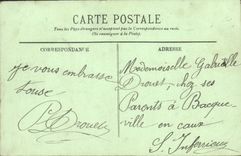 CARTE POSTALE
Tous les Pays étrangers n'acceptent pas la Correspondance au recto.
(Se renseigner à la Poste).
CORRESPONDANCE
ADRESSE
Je vous embrasse
tous
Mademoiselle Gabrielle
Drouet, chez ses
Parents à Bacque-
ville en caux
S. Inférieure